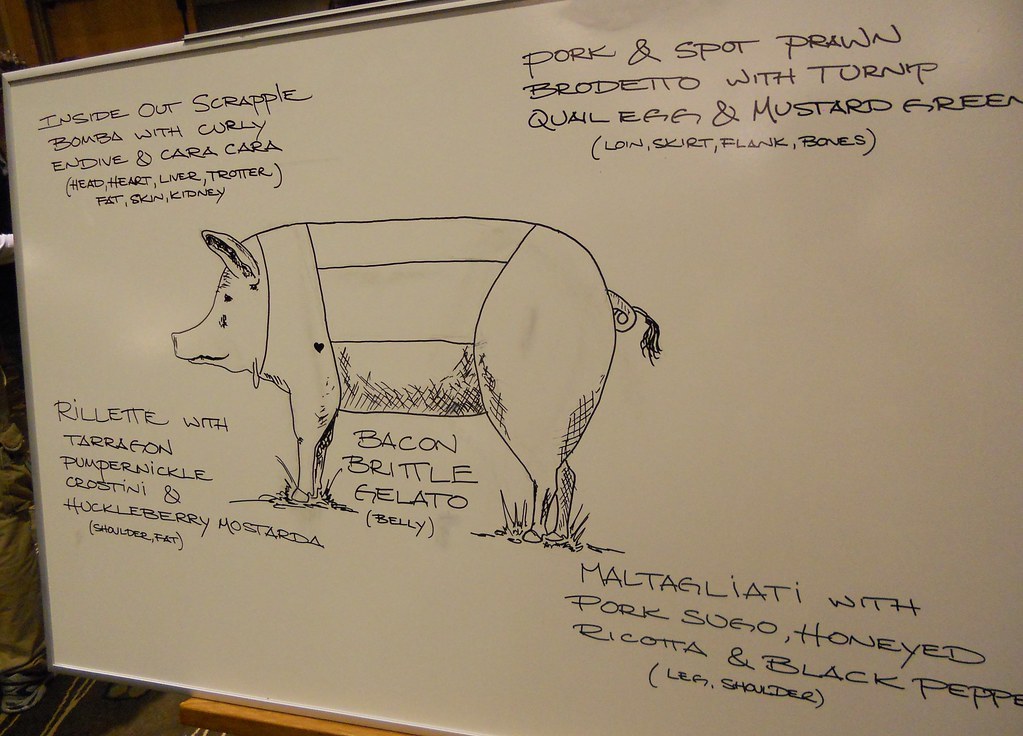 INSIDE OUT SCRAPPLE
BOMBA WITH CURLY
ENDIVE & CARA CARA
(HEAD, HEART, LIVER, TROTTER)
FAT, SKIN, KIDNEY
PORK & SPOT PRAWN
BRODETTO WITH TURNIP
QUAIL EGG & MUSTARD GREEN
(LOIN, SKIRT, FLANK, BONES)
RILLETTE WITH
TARRAGON
PUMPERNICKLE
CROSTINI &
HUCKLEBERRY MOSTARDA
(SHOULDER, FAT)
BACON
BRITTLE
GELATO
(BELLY)
MALTAGLIATI WITH
PORK SUGO, HONEYED
RICOTTA & BLACK PEPPE
(LEG, SHOULDER)